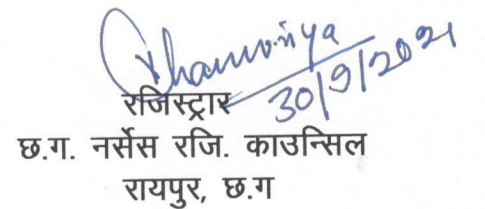 30/9/2021
रजिस्ट्रार
छ.ग. नर्सेस रजि. काउन्सिल
रायपुर, छ.ग